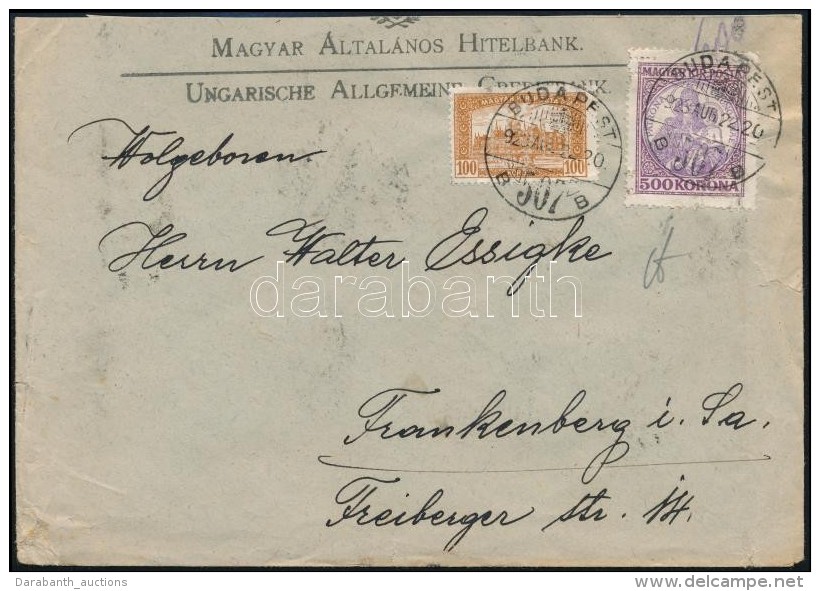 MAGYAR ÁLTALÁNOS HITELBANK.
UNGARISCHE ALLGEMEINE CREDITBANK.
BUDAPEST
923 AUG 22 20
B 507 B
MAGYAR
100 100
BUDAPEST
923 AUG 22 20
B 507 B
MAGYAR KIR. POSTA
500 KORONA
Wolgeboren
Herrn Walter Essigke
darabanth
Frankenberg i. Sa.
Freiberger str. 14.
Darabanth_auctions
delcampe.net